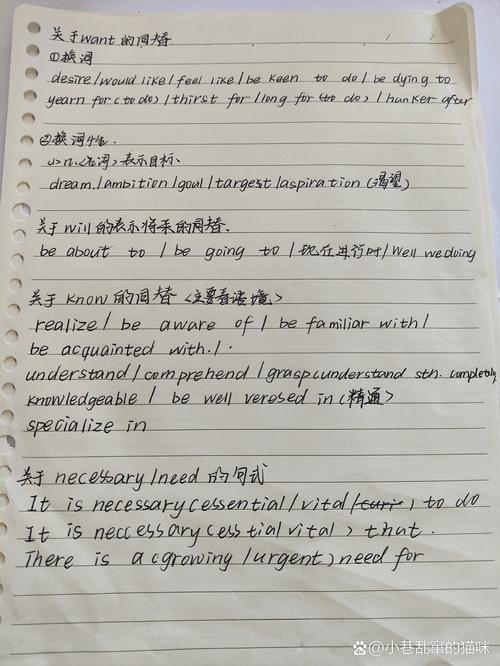 关于want的同替
①换词
desire/would like/feel like/be keen to do/be dying to
yearn for (to do)/thirst for/long for (to do)/hunker after
②换词性.
(1)n.(名词)表示目标.
dream./ambition/goul/targest/aspiration(渴望)
关于will的表示将来的同替.
be about to/be going to/现在进行时/well we doing
关于know的同替<主要看语境>
realize/be aware of/be familiar with/
be acquainted with./.
understand/comprehend/grasp(understand sth. completely
knowledgeable/be well verosed in(精通>
specialize in
关于necessary/need的句式
It is necessary(essential/vital/) to do
It is neccessary(esstial vital) that.
There is a(growing/urgent) need for
@小巷乱窜的猫咪